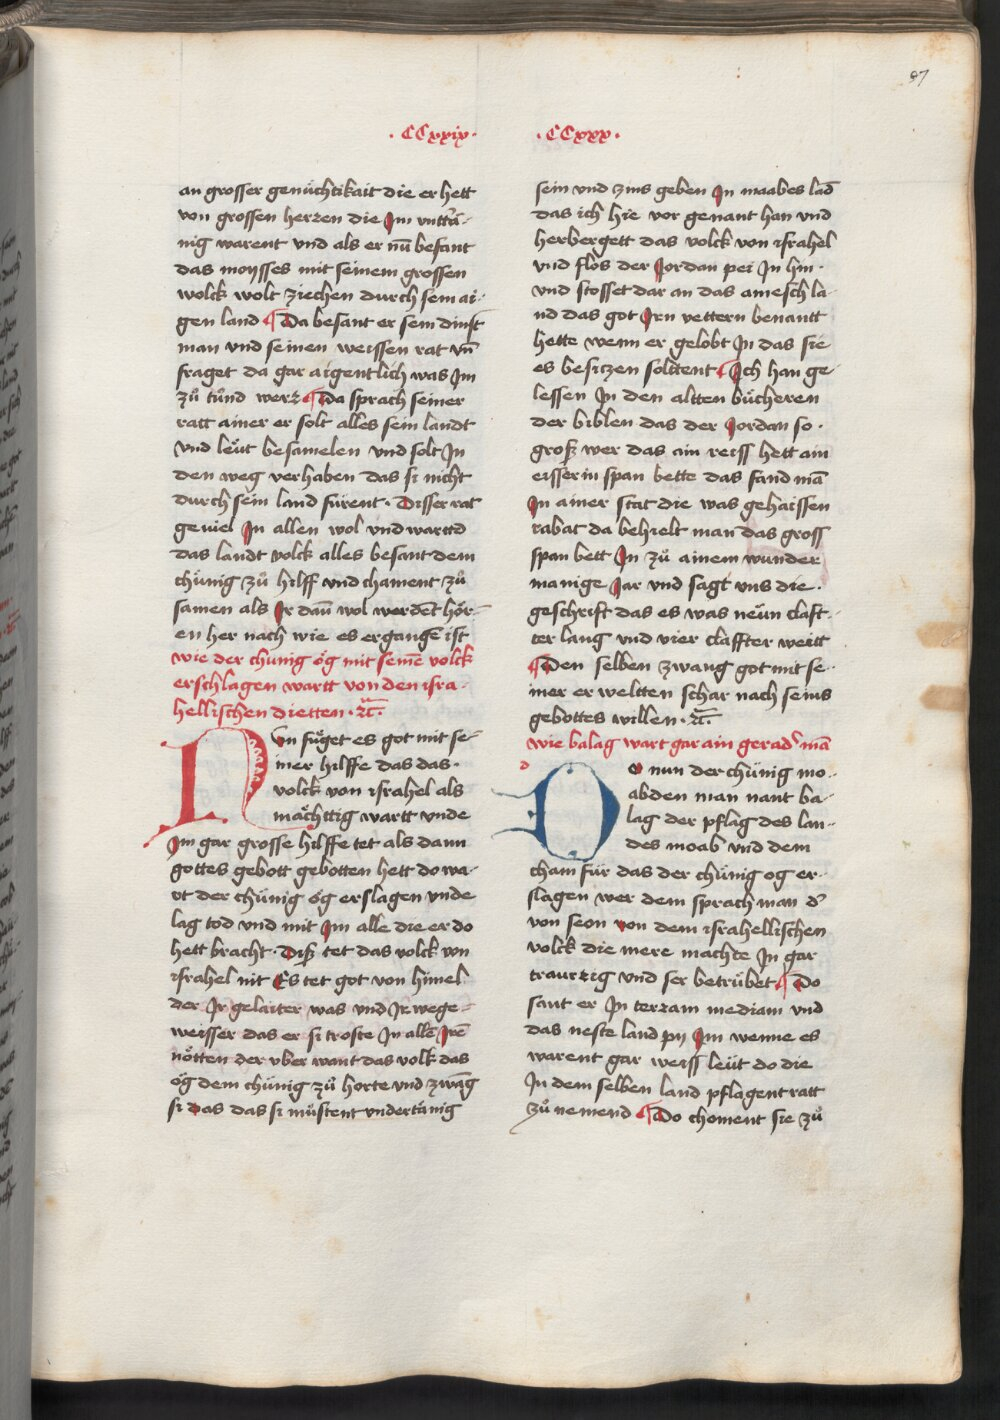 97
· CCxxix ·
an grosser genüchtikait die er hett
von grossen herzen die Jm vnttrã-
nig warent vnd als er nũ befant
das moysses mit seinem grossen
wolck wolt ziechen durch sein ai-
gen land ¶ Da besant er sein dinst
man vnd seinen weissen rat vñ
fraget da gar aigentlich was Jm
zů tůnd werz ¶ Da sprach seiner
ratt ainer er solt alles sein landt
vnd leüt besamelen vnd solt Jn
den weg verhaben das si nicht
durch sein land fürent · Disser rat
geviel Jn allen wol vnd warttd
das landt volck alles besant dem
chünig zů hilff vnd chament zů
samen als Jr dañ wol werdẽt hör-
en her nach wie es ergange ist
wie der chünig ög mit seinẽ volck
erschlagen wartt von den isra-
hellischen dietten · ꝛc̃ ·
Nun füget es got mit se-
iner hilffe das das ·
volck von israhel als
mächttig wartt vnde
Jm gar grosse hilffe tet als dann
gottes gebott gebotten hett do wa-
rt der chünig ög erslagen vnde
lag tod vnd mit Jm alle die er do
hett bracht · Diß tet das volck von
israhel nit Es tet got von himel
der Jr gelaiter was vnd Jr wege-
weisser das er si troste Jn allẽ Jrẽ
nötten der vber want das volk das
ög dem chünig zů horte vnd zwãg
si das das si müstent vndertänig
· CCxxx ·
sein vnd zins geben Jn maabes lãd
das ich hie vor genant han vnd
herbergett das volck von israhel
vnd flos der Jordan pei Jn hin ·
vnd stosset dar an das amesch la-
nd das got Jrn vettern benantt
hette wenn er gelobt Jn das sie
es besiczen solttent ¶ Jch han ge-
lessen Jn den altten bücheren
der biblen das der Jordan so ·
groß wer das ain reiss hett ain
eisserin span bette das fand mã
Jn ainer stat die was gehaissen
rabat da behielt man das gross
span bett Jn zů ainem wunder
manige Jar vnd sagt vns die ·
geschrift das es was neün claft-
ter lang vnd vier claffter weitt
¶ Den selben zwang got mit se-
iner er weltten schar nach seins
gebottes willen · ꝛc̃ ·
wie balag wart gar ain geradʾ mã
Do nun der chünig mo-
abden man nant ba-
lag der pflag des lan-
des moab vnd dem
cham für das der chünig og er-
slagen wer dem sprach man dʾ
von seon von dem israhellischen
volck die mere machte Jn gar
traurzig vnd ser betrübet ¶ Do
sant er Jn terzam mediam vnd
das neste land py Jm wenne es
warent gar weiss leüt do die
Jn dem selben land pflagent ratt
zů nemend ¶ Do choment sie zů